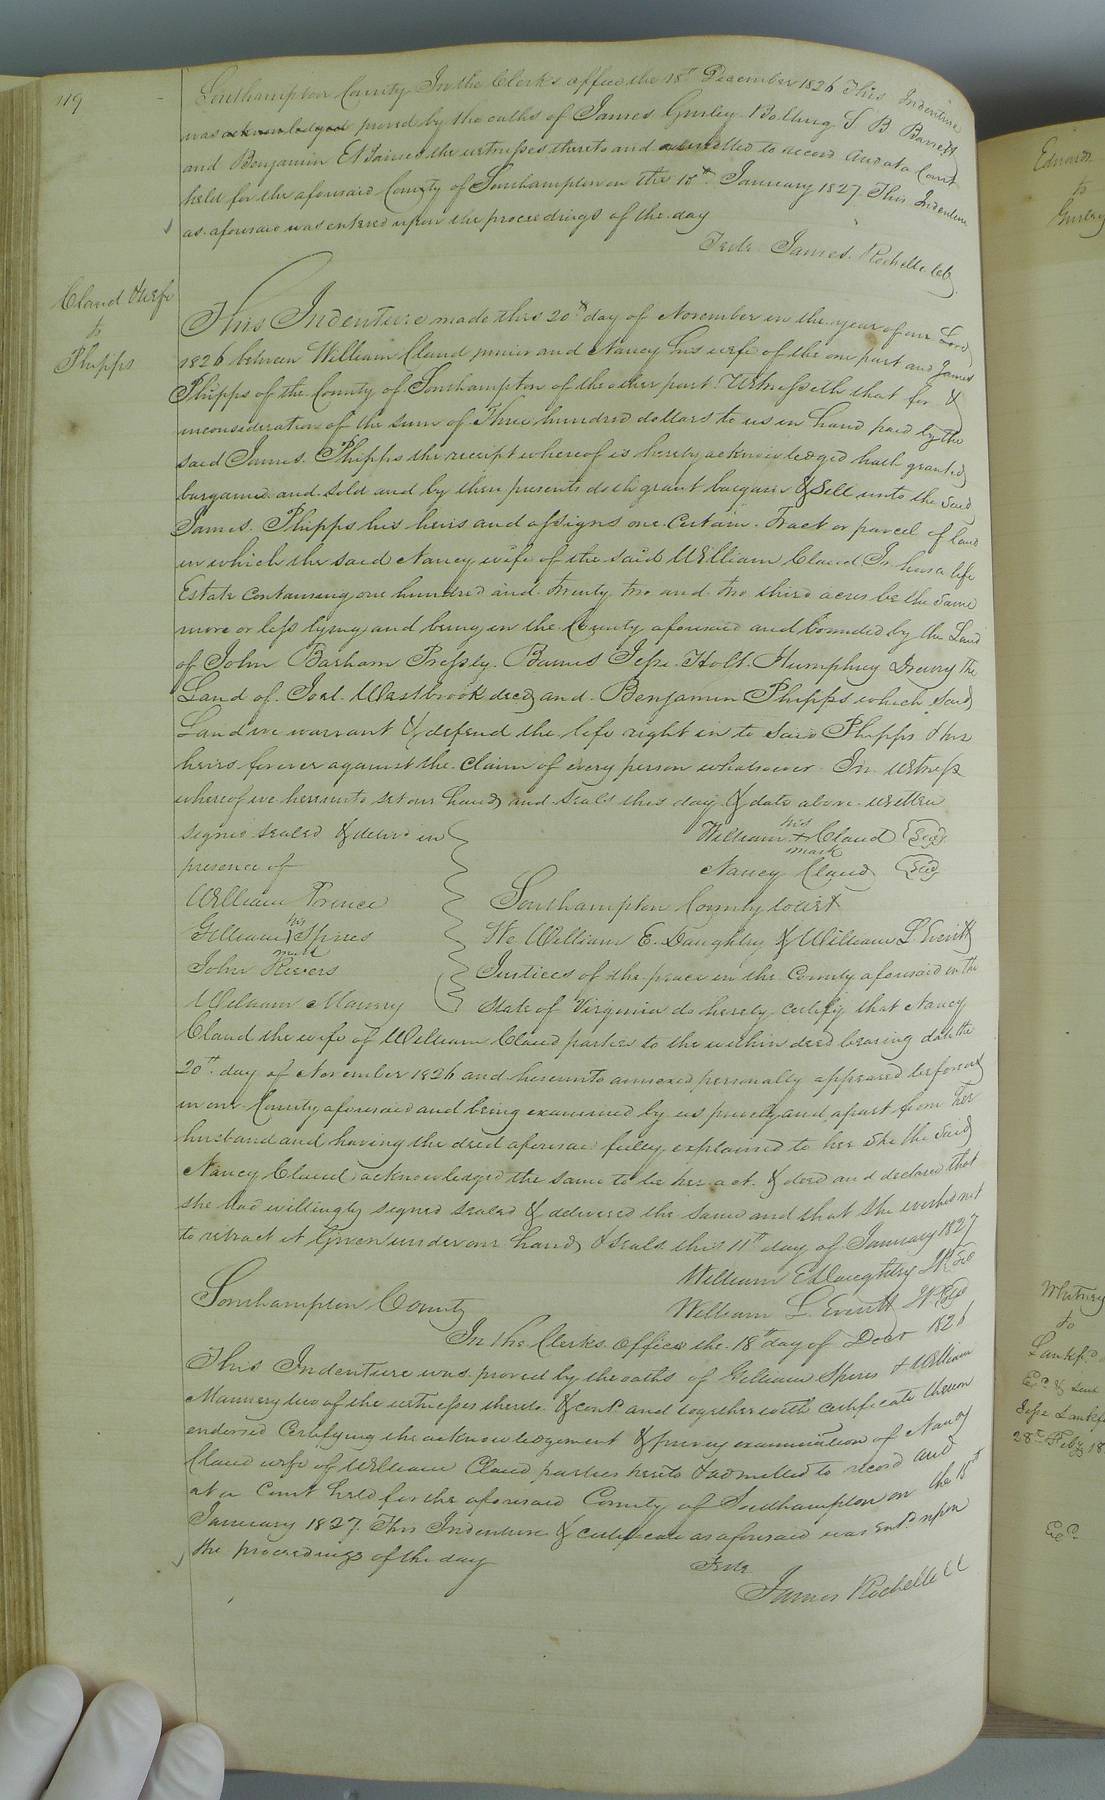 119
Southampton County In the Clerks office the 18th December 1826 This Indenture
was acknowledged proved by the oaths of James Gurley Bolling S B Barrett
and Benjamin the witnesses thereto and admitted to record And at a Court
held for the aforesaid County of Southampton on the 15th January 1827 This Indenture
as aforesaid was entered upon the proceedings of the day
Teste James Rochelle Clk
Claud & Wife
to
Phipps
This Indenture made this 20th day of November in the year of our Lord
1826 between William Claud junior and Nancy his wife of the one part and James
Phipps of the County of Southampton of the other part Witnesseth that for &
inconsideration of the sum of Three hundred dollars to us in hand paid by the
said James Phipps the receipt whereof is hereby acknowledged hath granted
bargained and sold and by these presents doth grant bargain & Sell unto the said
James Phipps his heirs and assigns one Certain Tract or parcel of land
in which the said Nancy wife of the said William Claud Jr has a life
Estate containing one hundred and twenty two and two third acres be the same
more or less lying and being in the County aforesaid and bounded by the Land
of John Barham Pressly Barnes Jesse Holt Humphrey Drewry the
Land of Joel Westbrook decd and Benjamin Phipps which said
Land we warrant & defend the life right in to said Phipps & his
heirs forever against the claim of every person whatsoever In witness
whereof we hereunto set our hand and seals this day & date above written
signed sealed & delivd in
presence of
William Prince
Gilliam his mark Spires
John Rivers
William Manry
William his + mark Claud Seal
Nancy Claud Seal
Southampton County Court
We William E. Daughtry & William L Everitt
Justices of the peace in the County aforesaid in the
State of Virginia do hereby certify that Nancy
Claud the wife of William Claud parties to the within deed bearing date the
20th day of November 1826 and hereunto annexed personally appeared before us
in our County aforesaid and being examined by us privily and apart from her
husband and having the deed aforesaid fully explained to her she the said
Nancy Claud acknowledged the same to be her act & deed and declared that
she had willingly signed sealed & delivered the same and that she wished not
to retract it Given under our hand & seals this 11th day of January 1827
William E Daughtry
William L Everitt
Southampton County
In the Clerks Office the 18th day of Decr 1826
This Indenture was proved by the oaths of Gilliam Spires & William
Mannery two of the witnesses thereto & contd and together with certificate thereon
endorsed Certifying the acknowledgement & privey examination of Nancy
Claud wife of William Claud parties hereto & admitted to record and
at a Court held for the aforesaid County of Southampton on the 15th
January 1827. This Indenture & certificate as aforesaid was Entd upon
the proceedings of the day
Teste
James Rochelle Cl
Edwards
to
Gurley
Whitney
to
Lankfd
Jesse Lankf
28th Feby 18